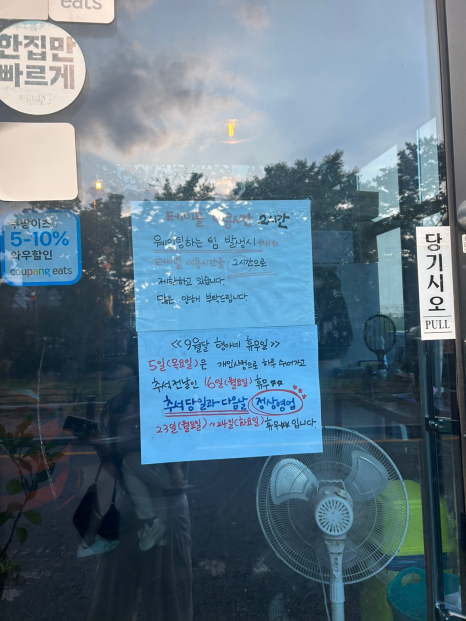 eats
한집만
빠르게
쿠팡이츠
5-10%
와우할인
coupang eats
당기시오
PULL
테이블 이용시간 2시간
웨이팅하는 팀 발생시
테이블 이용시간을 2시간으로
제한하고 있습니다
많은 양해 부탁드립니다
<< 9월달 형아네 휴무일 >>
5일(목요일)은 개인사정으로 하루 쉬어가고
추석전날인 16일(월요일) 휴무
추석당일과 다음날 정상영업
23일(월요일) ~ 24일(화요일) 휴무입니다